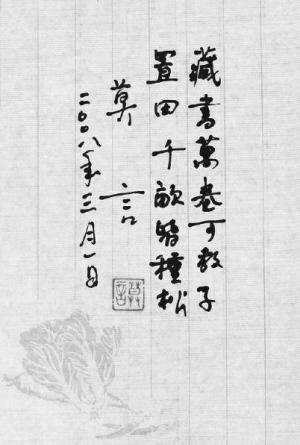 藏書萬卷可教子
置田千畝皆種松
莫言
二〇〇八年三月一日
莫言